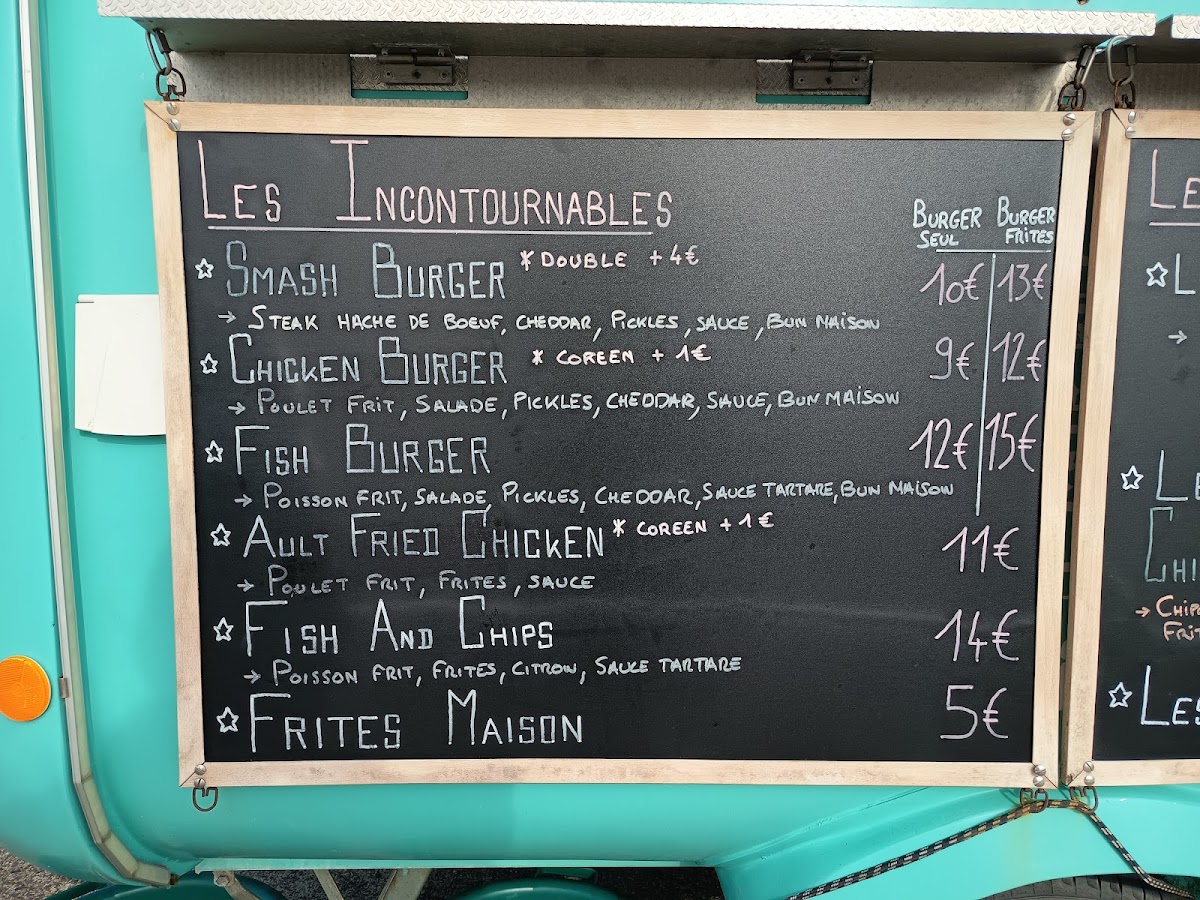 Les Incontournables
Burger Seul
Burger Frites
Smash Burger *Double +4€ 10€ 13€
→ Steak hache de boeuf, cheddar, pickles, sauce, bun maison
Chicken Burger *Coreen +1€ 9€ 12€
→ Poulet frit, salade, pickles, cheddar, sauce, bun maison
Fish Burger 12€ 15€
→ Poisson frit, salade, pickles, cheddar, sauce tartare, bun maison
Ault Fried Chicken *Coreen +1€ 11€
→ Poulet frit, frites, sauce
Fish And Chips 14€
→ Poisson frit, frites, citron, sauce tartare
Frites Maison 5€